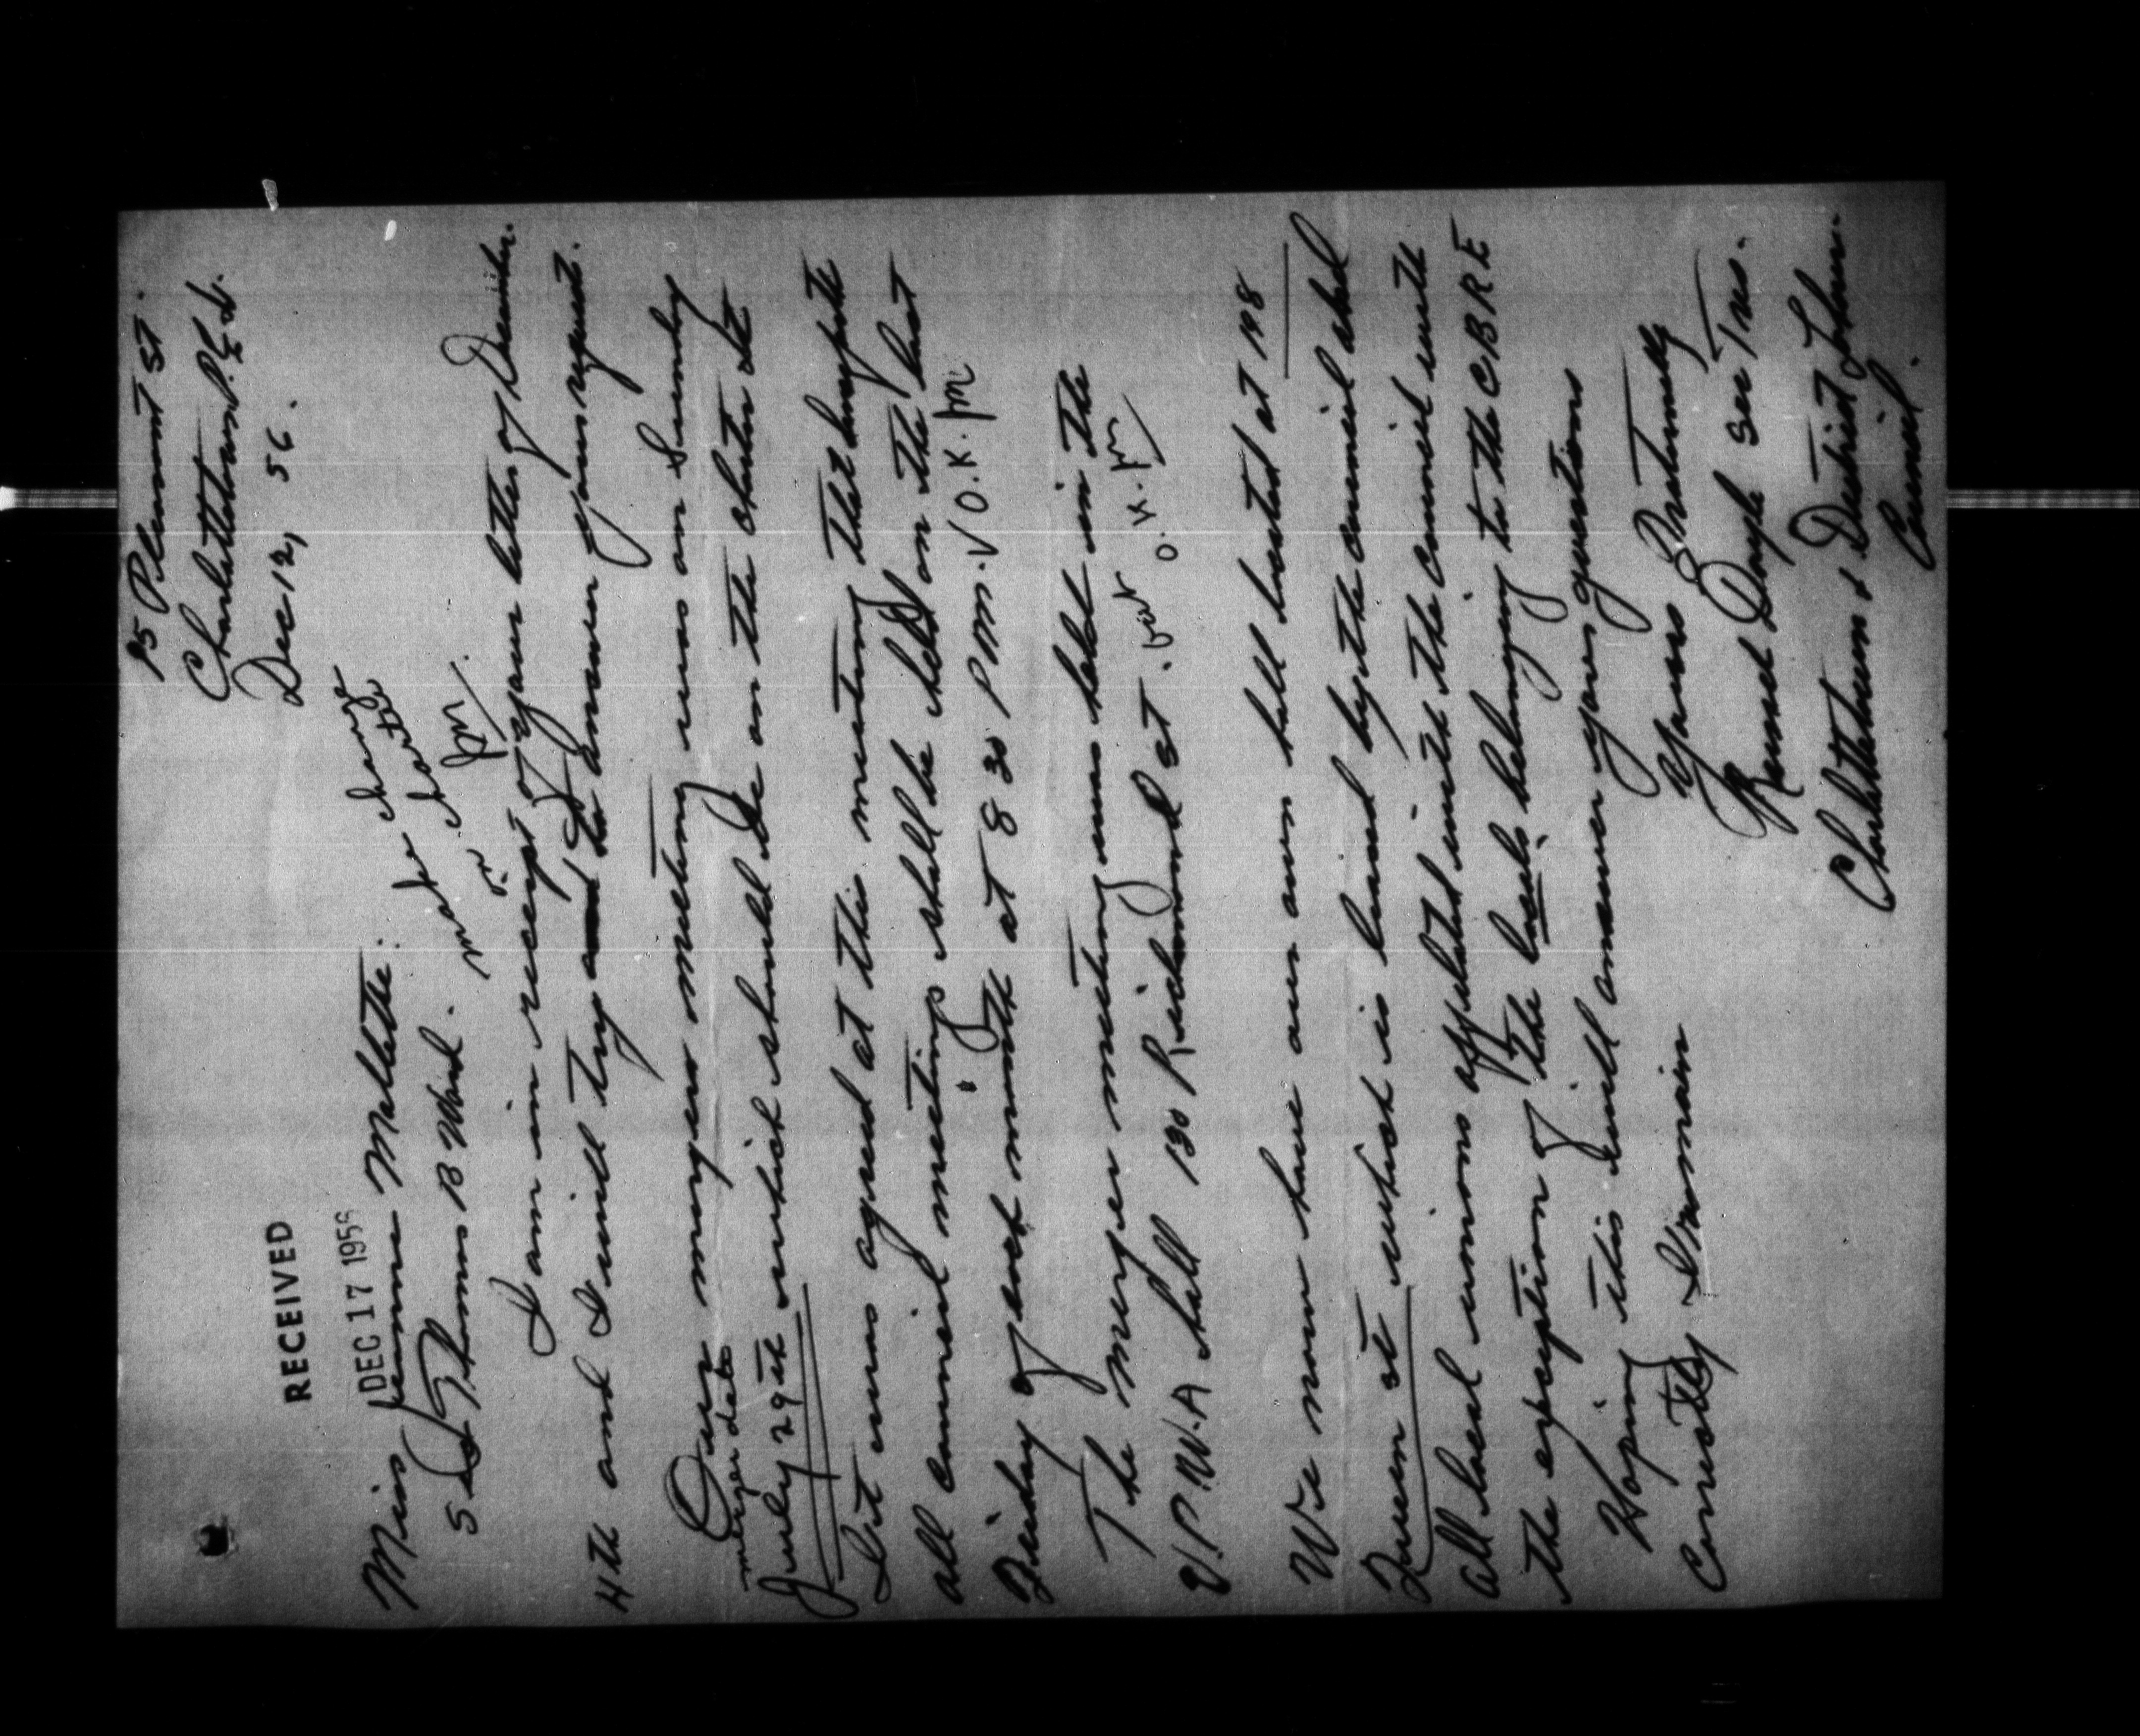 75 Pleasant St.
Charlottetown P.E.I.
Dec 12, 56.
RECEIVED
DEC 17 1956
Miss Jeanne Mallette.
make change
on charter
jm
S Thomas B Ward.
I am in receipt of your letter of December
4th and I will try to answer your request.
Our merger meeting was on Sunday
merger date
July 29th which should be on the charter etc
It was agreed at this meeting that hereafter
all council meetings shall be held on the last
Friday of each month at 8 30 P.M. V O.K. jm
The merger meeting was held in the
U.P.W.A hall 130 Richmond St. O.K. jm
We now have our own hall located at 148
Queen st which is leased by the council and
all local unions affiliated with the council with
the exception of the locals belonging to the CBRE
Hoping this will answer your questions
Correctly I remain
Yours Fraternally
Doyle Sec Tres.
Charlottetown & District Labour
Council.